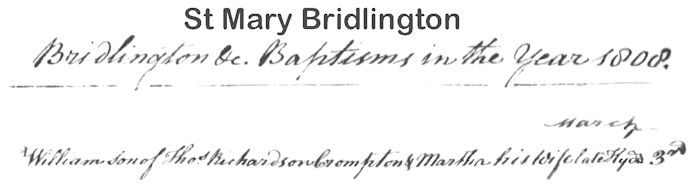 St Mary Bridlington
Bridlington &c. Baptisms in the Year 1808.
March
William son of Thos Richardson Crompton & Martha his Wife late Hyde 3rd